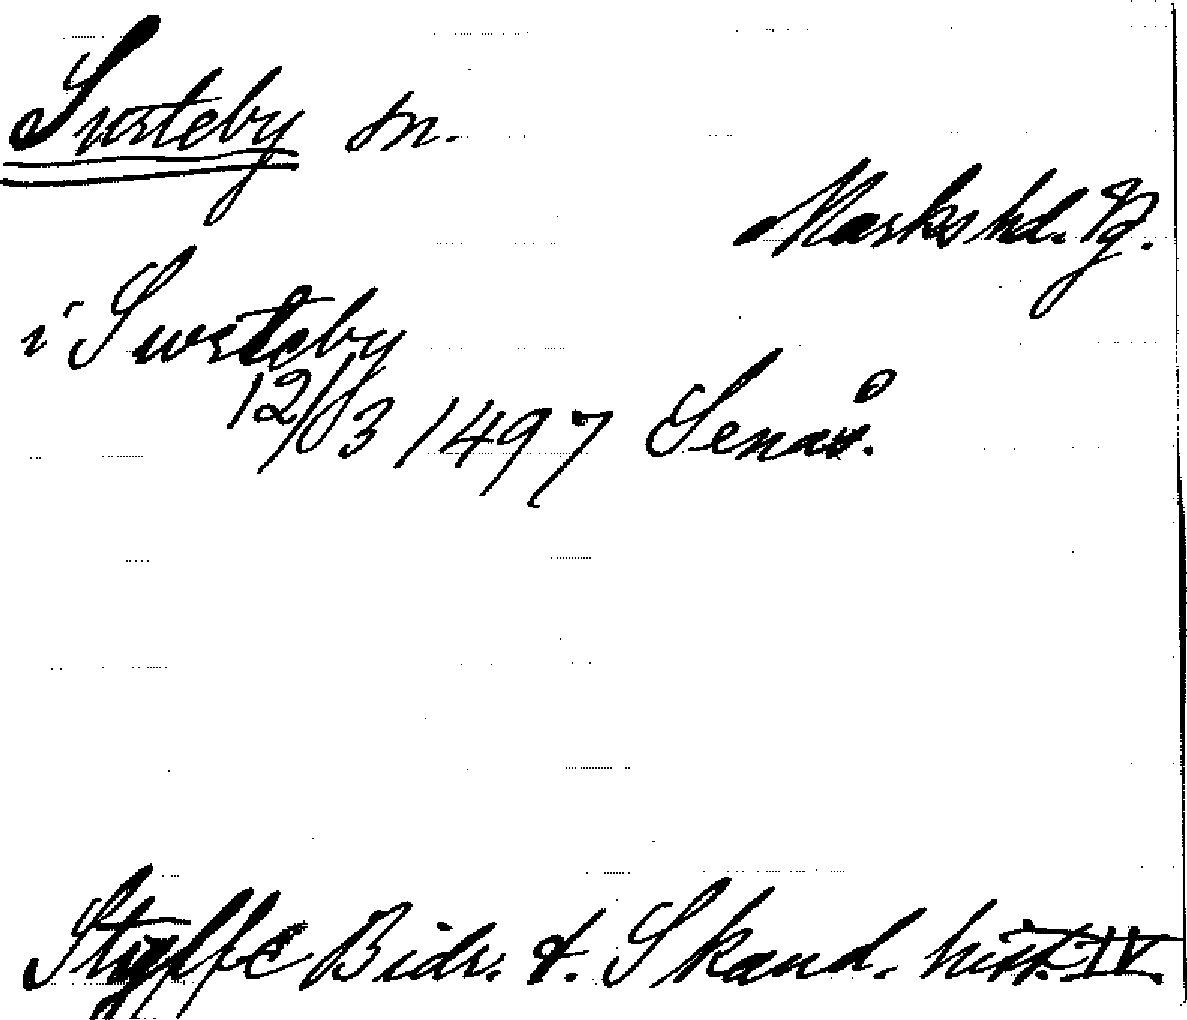 Surteby sn.
Marks hd. Vg.
i Surteby
12/3 1497 Senås.
Styffe Bidr. t. Skand. hist. IV.